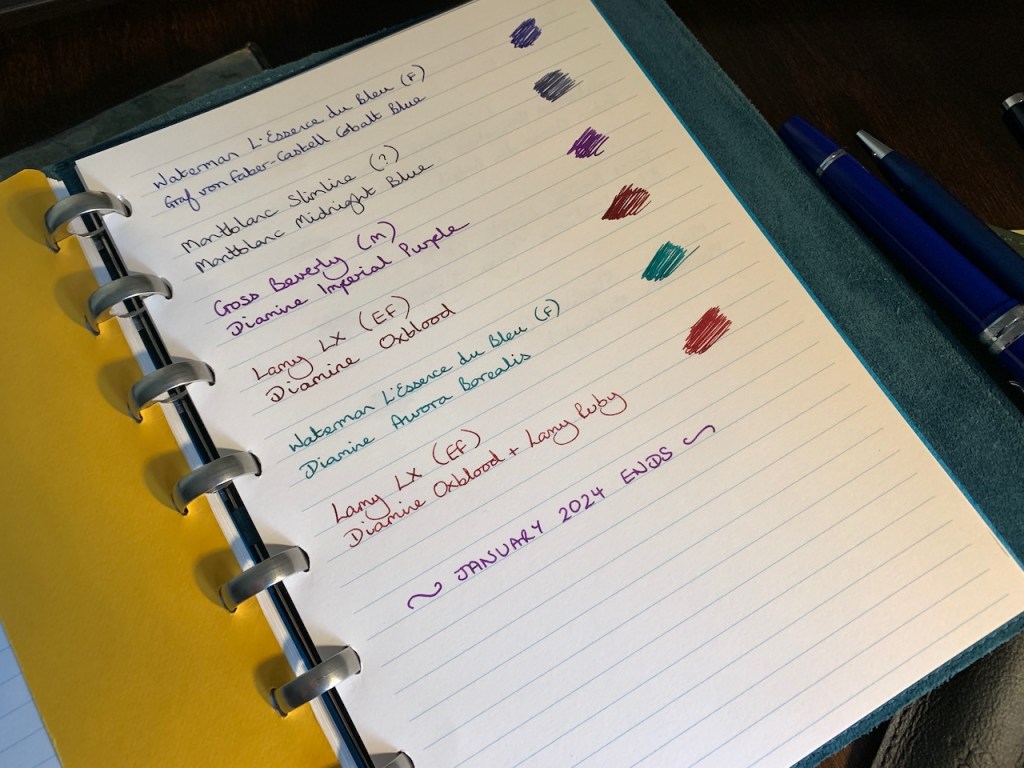 Waterman L'Essence du Bleu (F)
Graf von Faber-Castell Cobalt Blue
Montblanc Slimline (?)
Montblanc Midnight Blue
Cross Beverly (M)
Diamine Imperial Purple
Lamy LX (EF)
Diamine Oxblood
Waterman L'Essence du Bleu (F)
Diamine Aurora Borealis
Lamy LX (EF)
Diamine Oxblood + Lamy Ruby
~ JANUARY 2024 ENDS ~